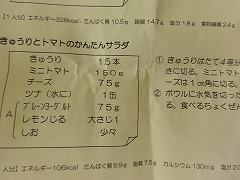 【1人分】エネルギー326kcal たんぱく質10.5g 脂質14.7g 塩分1.8g 食物繊維2.4g
きゅうりとトマトのかんたんサラダ
きゅうり 1.5本
ミニトマト 150g
チーズ 75g
ツナ(水に) 1缶
A プレーンヨーグルト 75g
レモンじる 大さじ1
しお 少々
① きゅうりはたて4等分
さに切る。ミニトマ
ーズは1cm角に切る。
② ボウルに水気を切った
る。食べるちょくぜん
人分】エネルギー106kcal たんぱく質6.9g 脂質7.5g カルシウム130mg